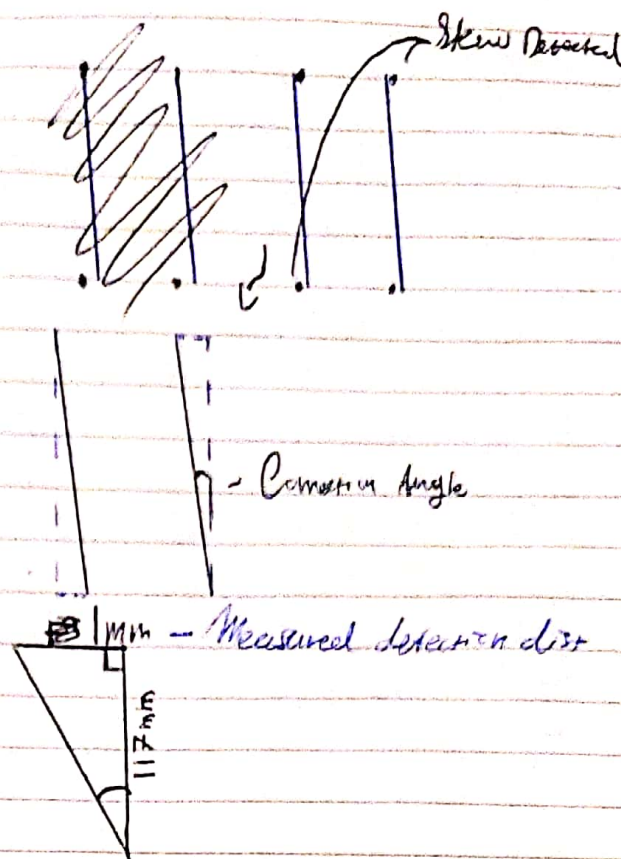 Skew Detected
- Correction Angle
1mm - Measured detection dist
117mm